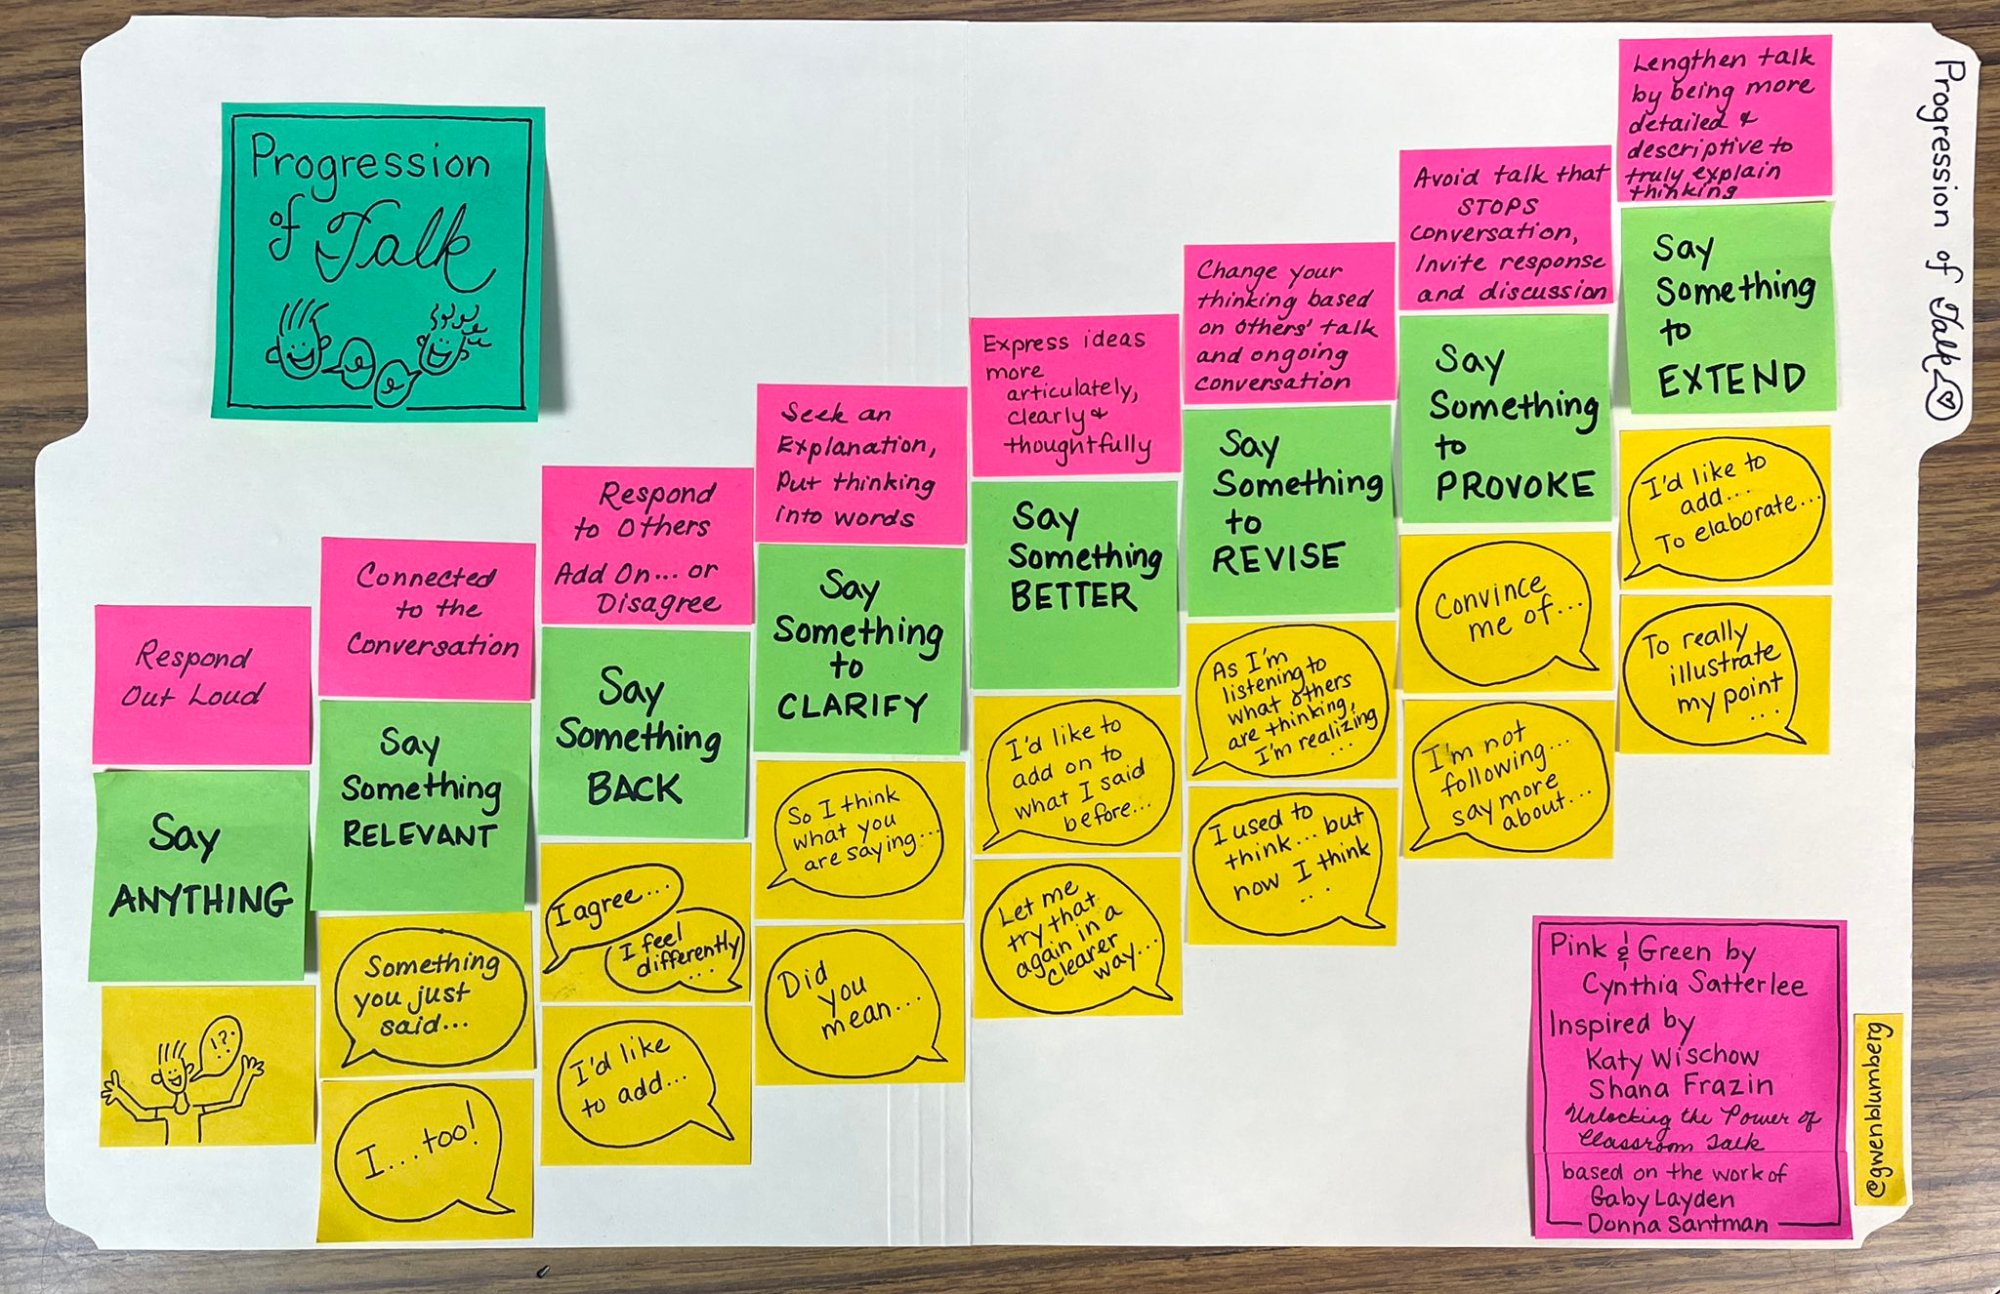 Progression
of Talk
Respond
Out Loud
Say
ANYTHING
!?.
Connected
to the
Conversation
Say
Something
RELEVANT
Something
you just
said...
I...too!
Respond
to Others
Add On... or
Disagree
Say
Something
BACK
I agree....
I feel
differently
...
I'd like
to add...
Seek an
Explanation,
Put thinking
into words
Say
Something
to
CLARIFY
So I think
what you
are saying...
Did
you
mean...
Express ideas
more
articulately,
clearly &
thoughtfully
Say
Something
BETTER
I'd like to
add on to
what I said
before...
Let me
try that
again in a
clearer
way...
Change your
thinking based
on others' talk
and ongoing
conversation
Say
Something
to
REVISE
As I'm
listening to
what others
are thinking,
I'm realizing
...
I used to
think... but
now I think
..
Avoid talk that
STOPS
conversation,
Invite response
and discussion
Say
Something
to
PROVOKE
Convince
me of...
I'm not
following...
say more
about...
Lengthen talk
by being more
detailed &
descriptive to
truly explain
thinking
Say
Something
to
EXTEND
I'd like to
add...
To elaborate...
To really
illustrate
my point
...
Progression of Talk
Pink & Green by
Cynthia Satterlee
Inspired by
Katy Wischow
Shana Frazin
Unlocking the Power of
Classroom Talk
based on the work of
Gaby Layden
Donna Santman
@gwenblumberg